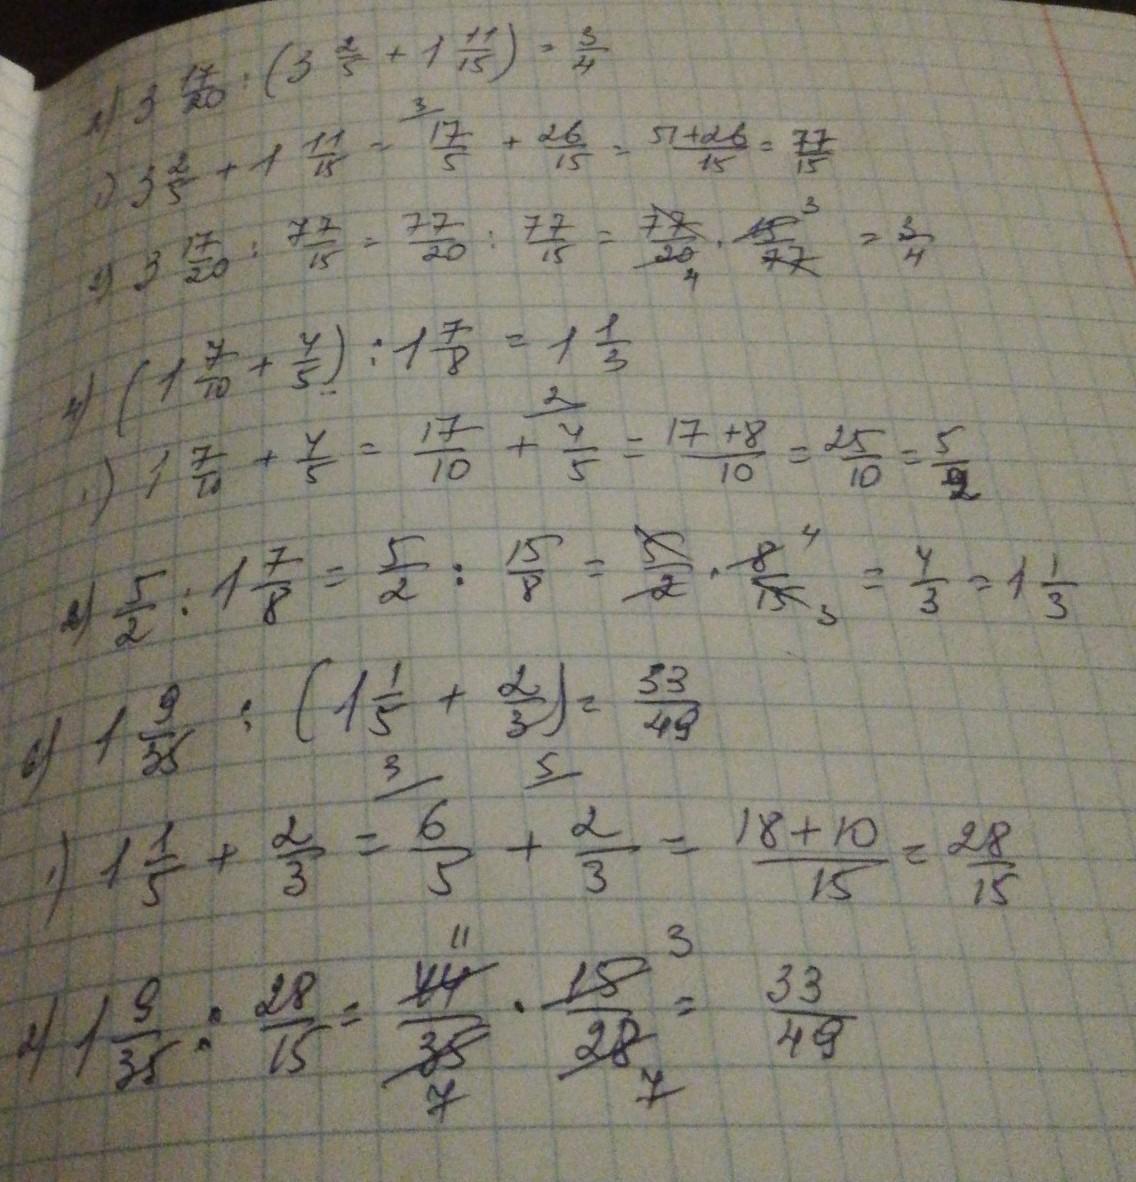 2) 3 17/20 : (3 2/5 + 1 11/15) = 3/4
1) 3 2/5 + 1 11/15 = 17/5 ³ + 26/15 = 51+26/15 = 77/15
2) 3 17/20 : 77/15 = 77/20 : 77/15 = 77/20 4 · 15/77 3 = 3/4
4) (1 7/10 + 4/5) : 1 7/8 = 1 1/3
1) 1 7/10 + 4/5 = 17/10 + 4/5 ² = 17+8/10 = 25/10 = 5/2
2) 5/2 : 1 7/8 = 5/2 : 15/8 = 5/2 · 8/15 4 3 = 4/3 = 1 1/3
6) 1 9/35 : (1 1/5 + 2/3) = 33/49
1) 1 1/5 + 2/3 = 6/5 ³ + 2/3 ⁵ = 18+10/15 = 28/15
2) 1 9/35 : 28/15 = 44/35 11 7 · 15/28 3 7 = 33/49